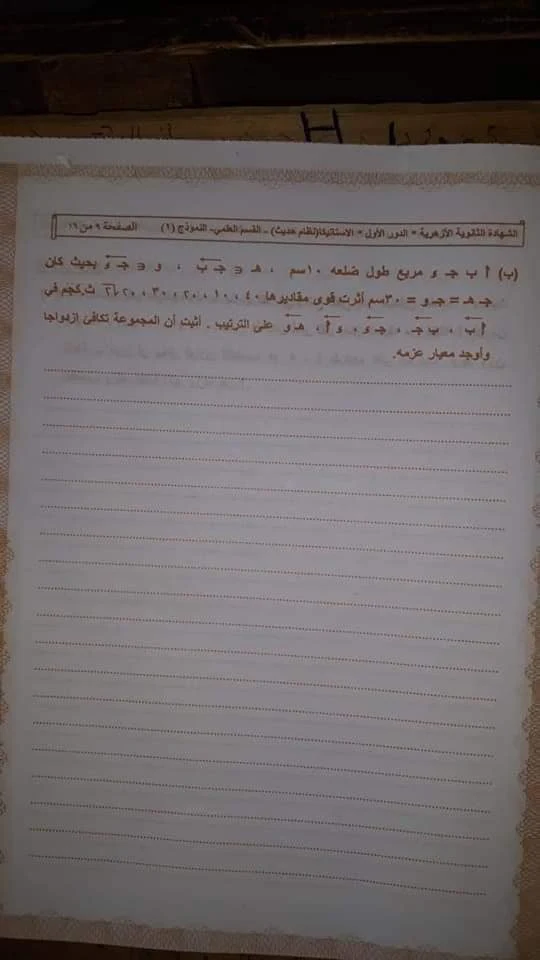 الشهادة الثانوية الأزهرية * الدور الأول * الاستاتيكا(نظام حديث) - القسم العلمي- النموذج (١) الصفحة ٩ من ١٦
(ب) أ ب جـ د مربع طول ضلعه ١٠سم ، هـ ∋ جـ ب ، و ∋ جـ د بحيث كان
جـ هـ = جـ و = ٣٠سم أثرت قوى مقاديرها ٤٠ ، ١٠ ، ٢٠ ، ٣٠ ، ٢٠√٢ ث.كجم في
أ ب ، ب جـ ، جـ د ، د أ ، هـ و على الترتيب . أثبت أن المجموعة تكافئ ازدواجا
وأوجد معيار عزمه.